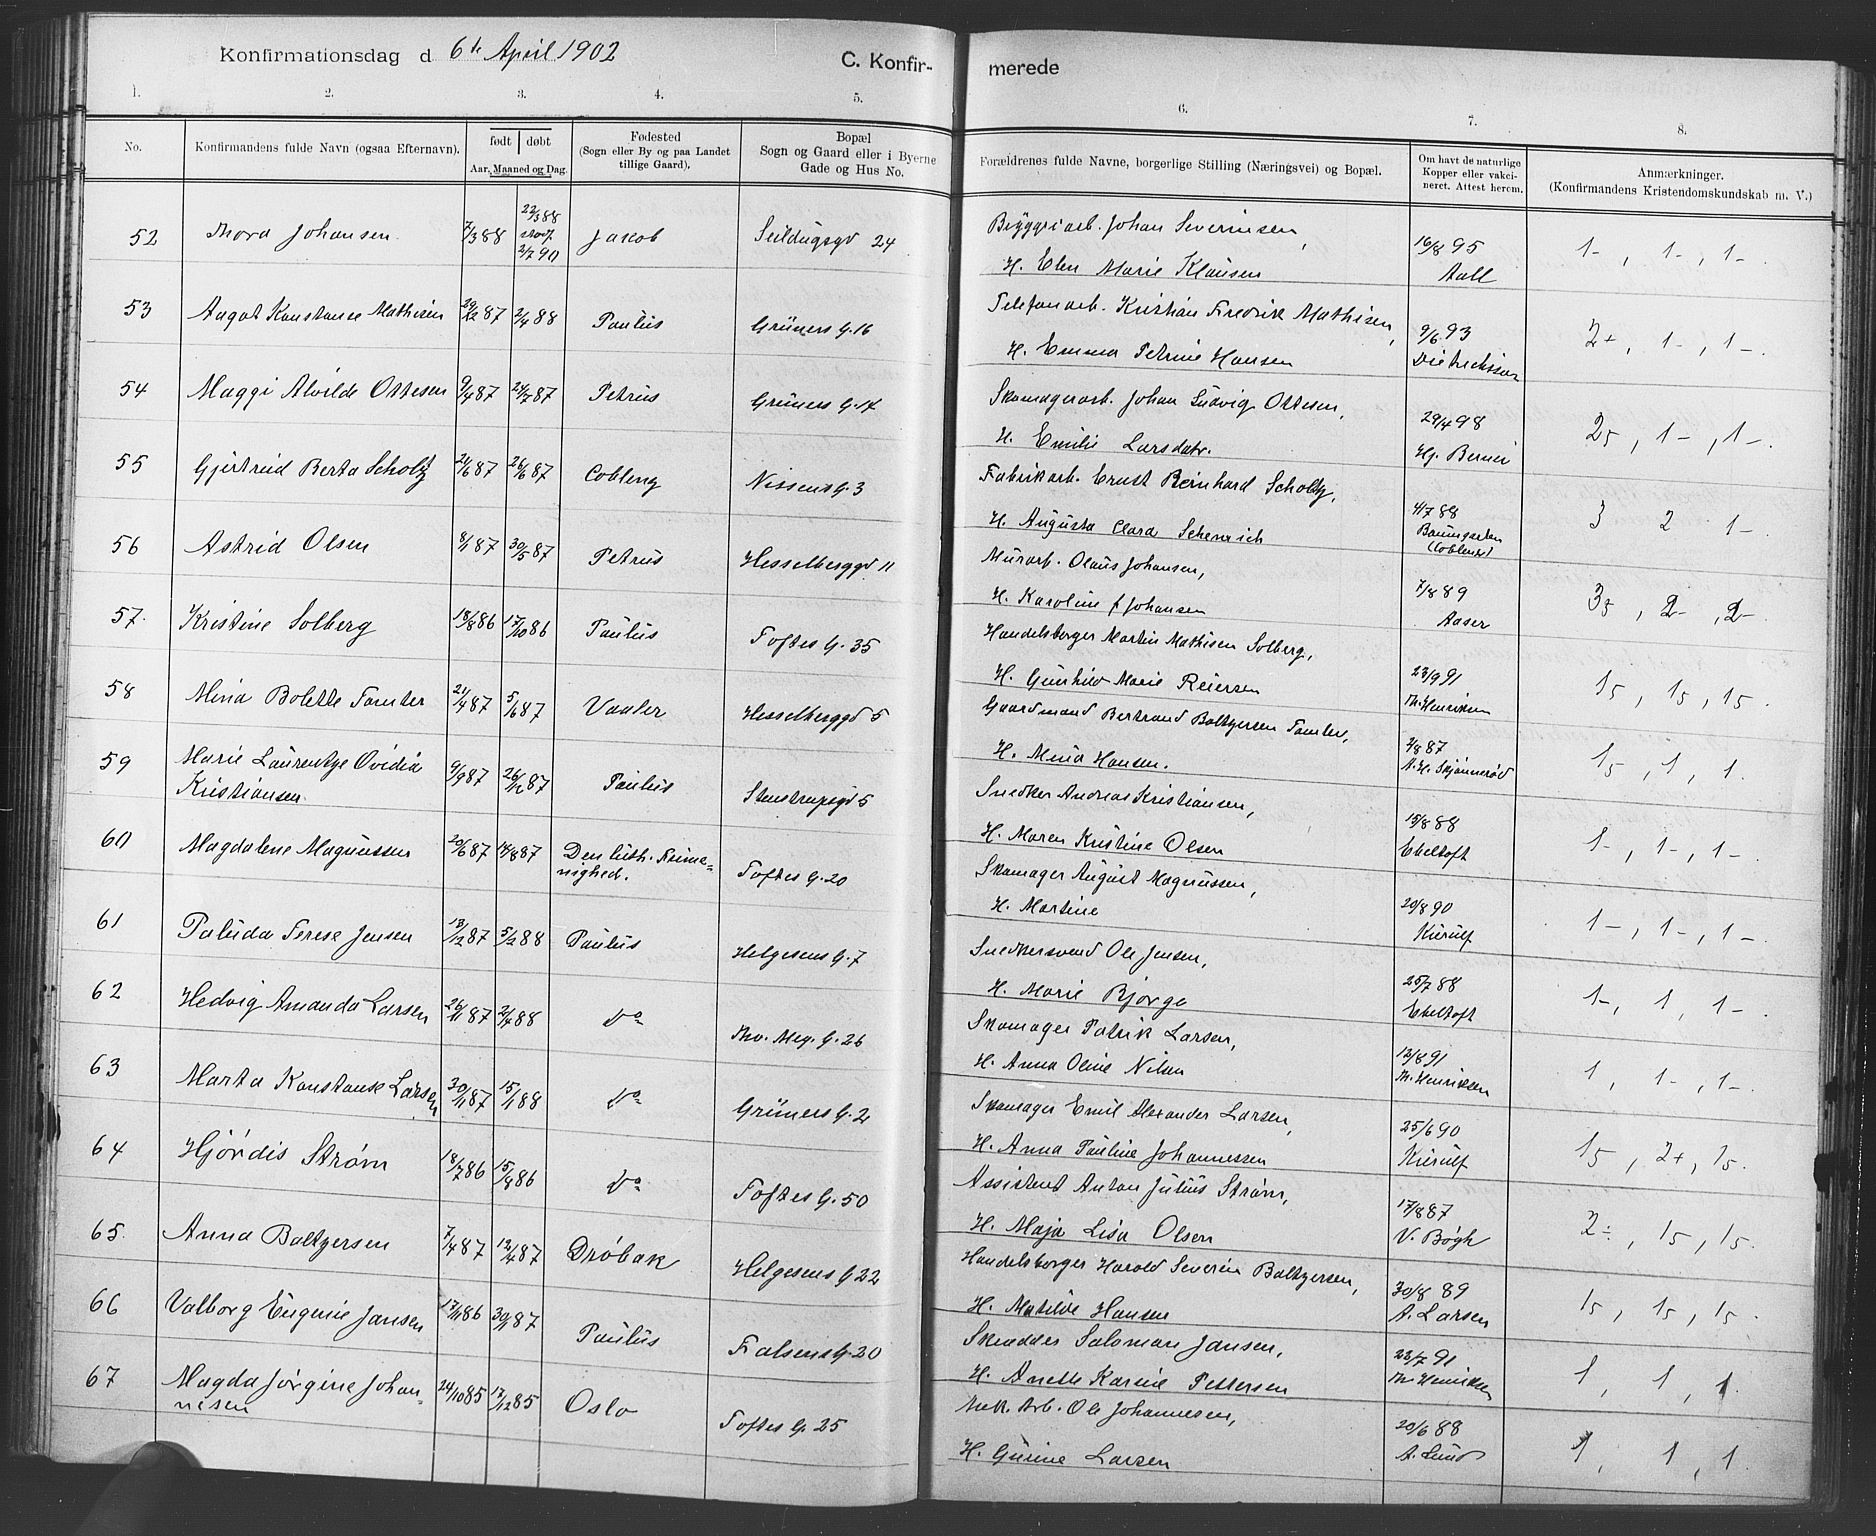 Konfirmationsdag d 6te April 1902
C. Konfir- merede
1. 2. 3. 4. 5. 6. 7. 8.
No.
Konfirmandens fulde Navn (ogsaa Efternavn).
født døbt
Aar, Maaned og Dag.
Fødested
(Sogn eller By og paa Landet
tillige Gaard).
Bopæl
Sogn og Gaard eller i Byerne
Gade og Hus No.
Forældrenes fulde Navne, borgerlige Stilling (Næringsvei) og Bopæl.
Om havt de naturlige
Kopper eller vakci-
neret. Attest herom.
Anmærkninger.
(Konfirmandens Kristendomskundskab m. V.)
52 Johansen 7/3 88 22/3 88 2/7 90 Jakob Seildugsgd 24 Bryggeriarb. Johan Severinsen, 16/8 95 1-, 1-, 1-
H. Elen Marie Klausen Aall
53 Aagot Konstanse Mathisen 29/12 87 2/4 88 Paulus Grüners G. 16 Telefonarb. Kristian Fredrik Mathisen, 9/6 93 2+, 1-, 1-
H. Emma Petrine Hansen Dietrichson
54 Maggi Alvilde Ottesen 9/4 87 24/7 87 Petrus Grüners G. 17 Skomagerarb. Johan Ludvig Ottesen, 29/4 98 25, 1-, 1-
H. Emilie Larsdatr. Hj. Berner
55 Gjertrud Berta Scholtz 24/6 87 26/6 87 Coblenz Nissens G. 3 Fabrikarb. Ernst Reinhard Scholtz, 4/7 88 3 2 1-
H. Augusta Clara Baumgarten
(Coblenz)
56 Astrid Olsen 8/1 87 30/5 87 Petrus Hesselberggd 11 Murarb. Olaus Johansen, 7/8 89 35, 2-, 2-
H. Karoline f Johansen Aaser
57. Kristine Solberg 18/8 86 17/10 86 Paulus Toftes G. 35 Handelsborger Martin Mathisen Solberg, 23/9 91 15, 15, 15.
H. Gunhild Marie Reiersen Th. Henriksen
58 Mina Bolette Tomter 21/4 87 5/6 87 Vaaler Hesselberggd 5 Gaardmand Bertrand Boltzersen Tomter, 2/8 87 15, 1, 1.
H. Mina Hansen. A. H. Skjønnerød
59 Marie Laurentze Ovidia 9/9 87 26/12 87 Paulus Stenstrupsgd 5 Snedker Andreas Kristiansen, 15/8 88 1-, 1-, 1-
Kristiansen. H. Maren Kristine Olsen Ebeltoft
60 Magdalene Magnussen 20/6 87 14/8 87 Den luth. Frime- Toftes G. 20 Skomager August Magnussen, 20/8 90 1-, 1-, 1-
nighed. H. Martine Kierulf
61 Paluda Terese Jensen 13/12 87 5/2 88 Paulus Helgesens G. 7 Snedkersvend Ole Jensen, 25/7 88 1-, 1, 1-
H. Marie Bjørge Ebeltoft
62 Hedvig Amanda Larsen 26/11 87 2/4 88 Do Thv. Mey. G. 26 Skomager Patrik Larsen, 12/8 91 1, 1-, 1-
H. Anna Oline Nilsen Th. Henriksen
63 Marta Konstanse Larsen 30/11 87 15/1 88 Do Grüners G. 2 Skomager Emil Alexander Larsen, 25/6 90 15, 2+, 15.
H. Anna Pauline Johannessen Kierulf
64 Hjørdis Strøm 18/7 86 15/8 86 Do Toftes G. 50 Assistent Anton Julius Strøm, 17/8 87 2÷, 15, 15.
H. Maja Lisa Olsen V. Bøgh
65. Anna Boltzersen 7/4 87 12/4 87 Drøbak Helgesens G. 22 Handelsborger Harald Severin Boltzersen, 30/8 89 15, 15, 15
H. Matilde Hansen A. Larsen
66 Valborg Eugenie Jansen 17/11 86 30/1 87 Paulus Falsens G. 20 Skrædder Salomon Jansen, 23/7 91 1, 1, 1
H. Anette Karine Pettersen Th. Henriksen
67 Magda Jørgine Johan- 24/10 85 17/12 85 Oslo Toftes G. 25 Mek. Arb. Ole Johannesen, 20/6 88 1, 1, 1
nesen H. Gurine Larsen A. Lund